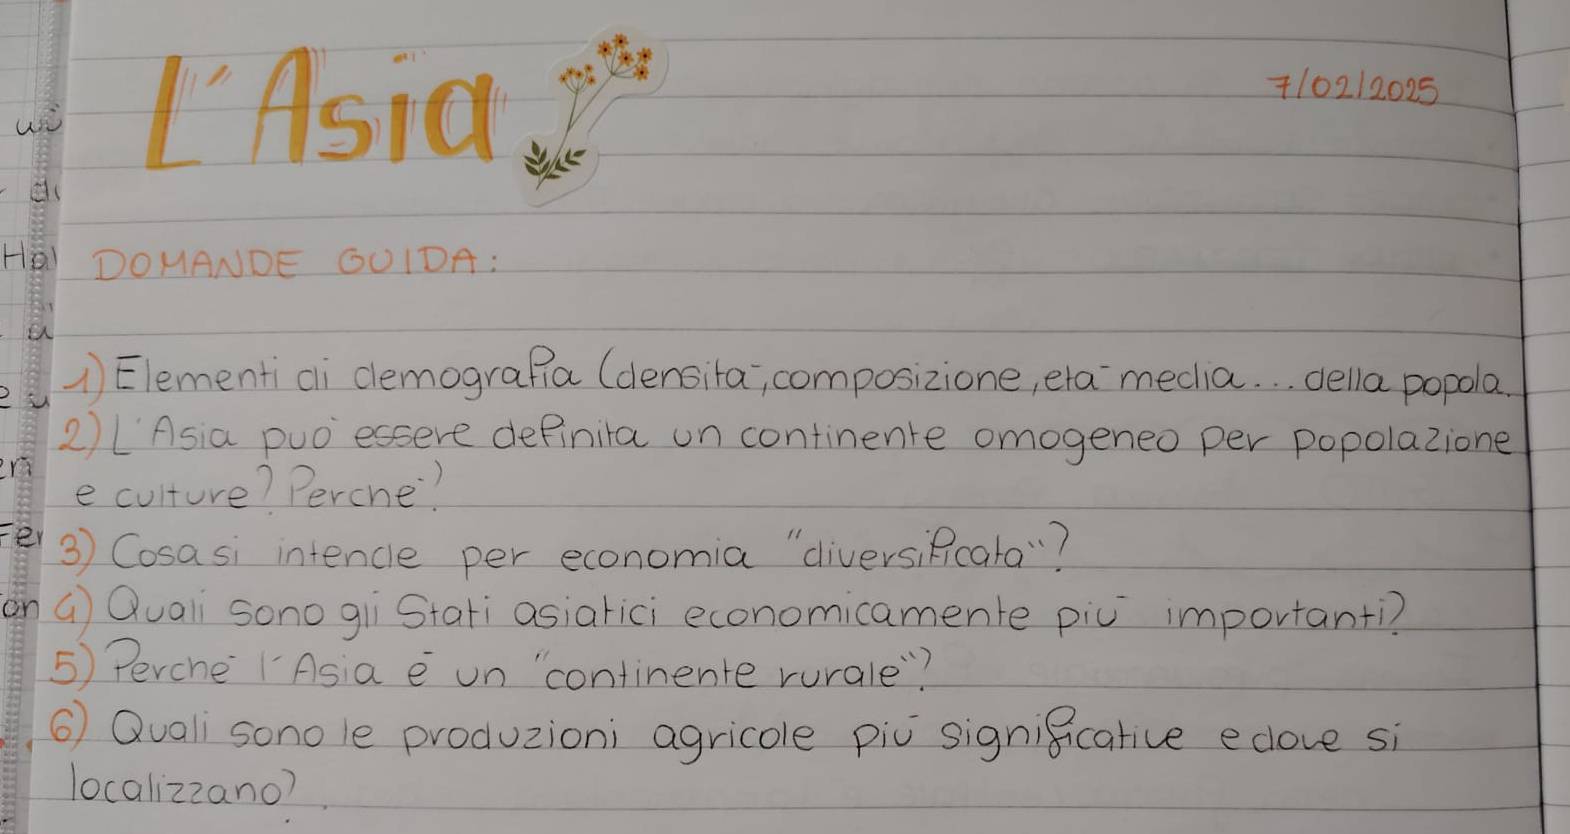 L'Asia
7/02/2025
DOMANDE GUIDA:
1) Elementi di demografia (densità, composizione, età media... della popola.
2) L'Asia può essere definita un continente omogeneo per popolazione
e culture? Perché?
3) Cosa si intende per economia "diversificata"?
4) Quali sono gli Stati asiatici economicamente più importanti?
5) Perché l'Asia è un "continente rurale"?
6) Quali sono le produzioni agricole più significative e dove si
localizzano?